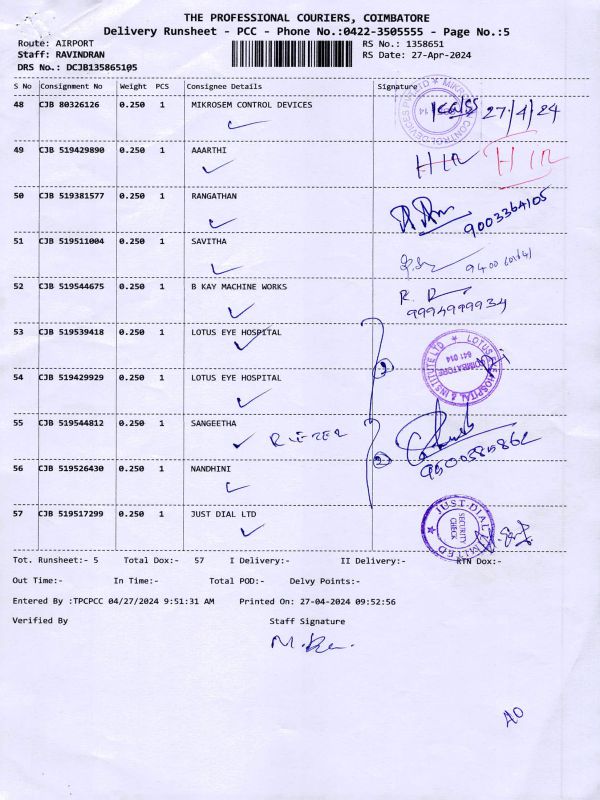 THE PROFESSIONAL COURIERS, COIMBATORE
Delivery Runsheet - PCC - Phone No.:0422-3505555 - Page No.:5
Route: AIRPORT RS No.: 1358651
Staff: RAVINDRAN RS Date: 27-Apr-2024
DRS No.: DCJB135865105
S No Consignment No Weight PCS Consignee Details Signature
48 CJB 80326126 0.250 1 MIKROSEM CONTROL DEVICES 27/4/24
49 CJB 519429890 0.250 1 AAARTHI
50 CJB 519381577 0.250 1 RANGATHAN
9003364105
51 CJB 519511004 0.250 1 SAVITHA
52 CJB 519544675 0.250 1 B KAY MACHINE WORKS
9994999934
53 CJB 519539418 0.250 1 LOTUS EYE HOSPITAL
LOTUS EYE HOSPITAL & INSTITUTE LTD
COIMBATORE
641 014
2
54 CJB 519429929 0.250 1 LOTUS EYE HOSPITAL
55 CJB 519544812 0.250 1 SANGEETHA
2
9500385862
56 CJB 519526430 0.250 1 NANDHINI
57 CJB 519517299 0.250 1 JUST DIAL LTD
JUST DIAL LIMITED
SECURITY
CHECK
Tot. Runsheet:- 5 Total Dox:- 57 I Delivery:- II Delivery:- RTN Dox:-
Out Time:- In Time:- Total POD:- Delvy Points:-
Entered By :TPCPCC 04/27/2024 9:51:31 AM Printed On: 27-04-2024 09:52:56
Verified By Staff Signature
AO